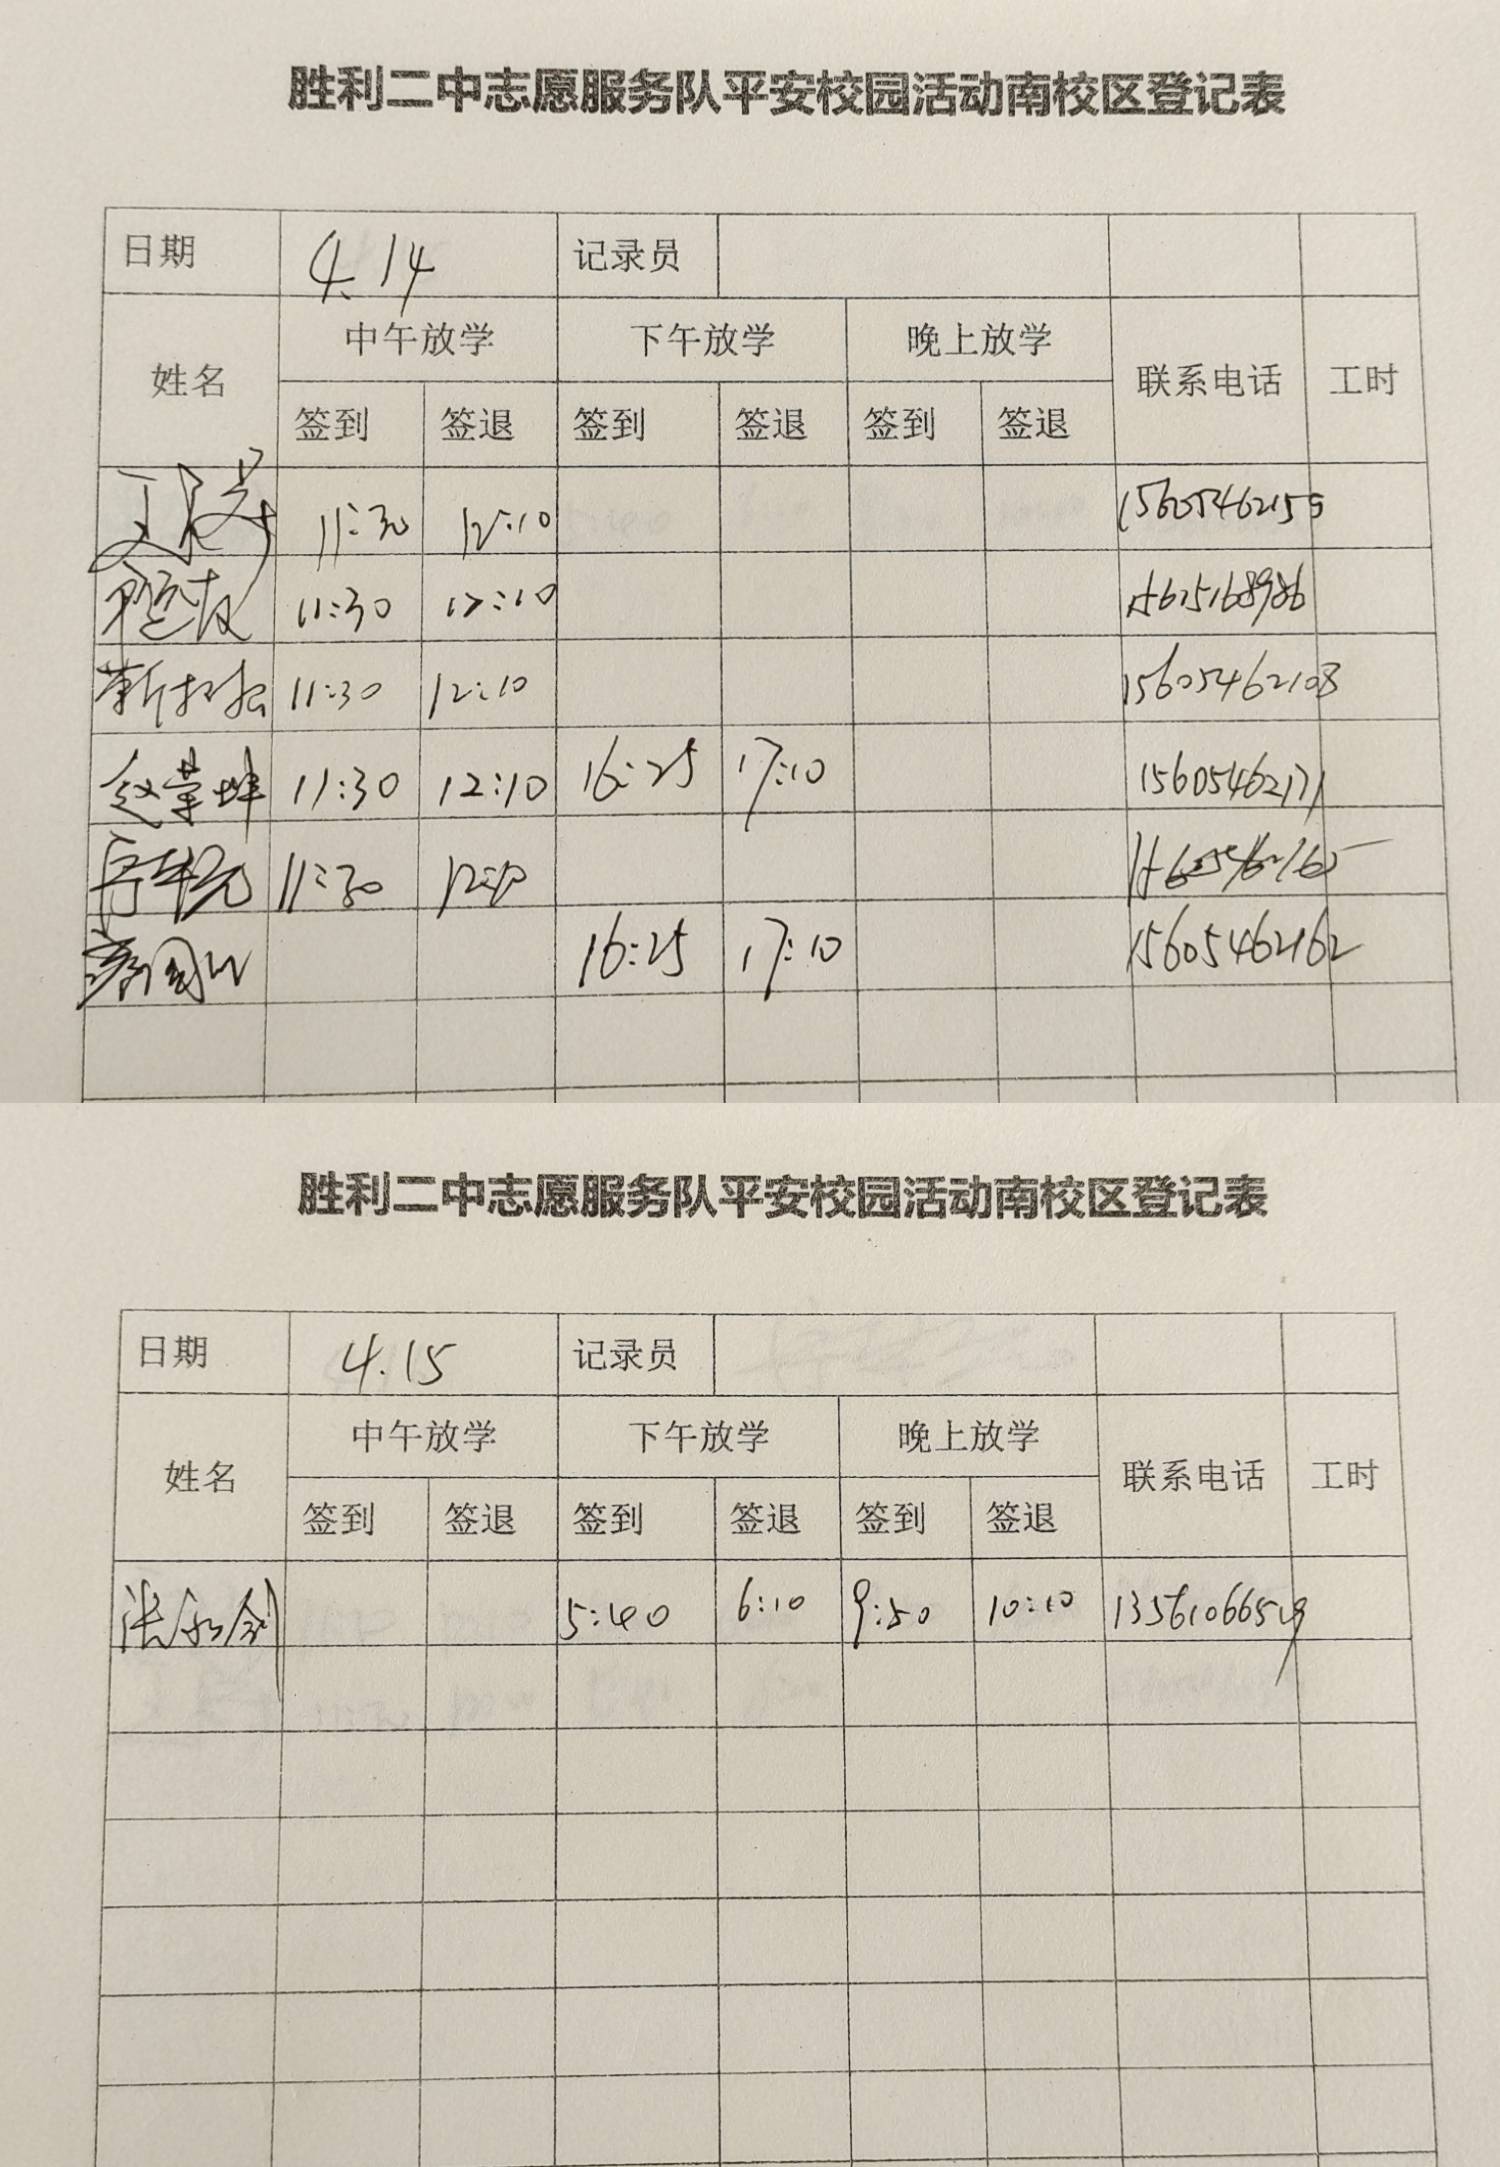 胜利二中志愿服务队平安校园活动南校区登记表
日期 4.14 记录员
姓名 中午放学 下午放学 晚上放学 联系电话 工时
签到 签退 签到 签退 签到 签退
11:30 12:10 15605462155
11:30 12:10 15615168986
11:30 12:10 15605462108
赵荣坤 11:30 12:10 16:25 17:10 15605462171
11:30 12:10 15605462165
16:25 17:10 15605462162
胜利二中志愿服务队平安校园活动南校区登记表
日期 4.15 记录员
姓名 中午放学 下午放学 晚上放学 联系电话 工时
签到 签退 签到 签退 签到 签退
张永剑 5:40 6:10 9:50 10:10 13561066529